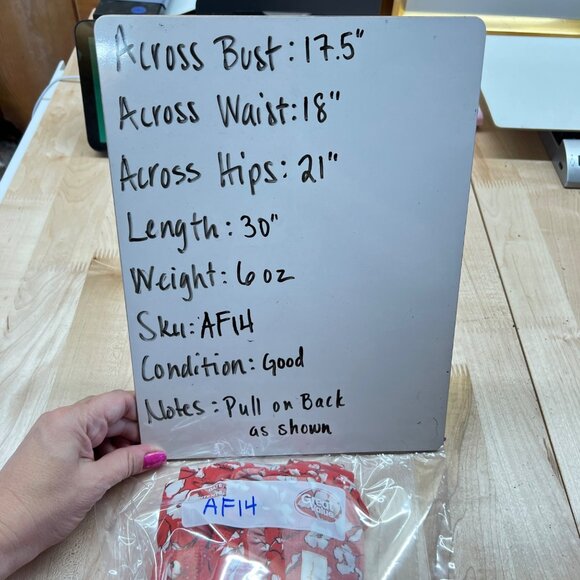 Across Bust: 17.5"
Across Waist: 18"
Across Hips: 21"
Length: 30"
Weight: 6 oz
Sku: AF14
Condition: Good
Notes: Pull on Back
as shown
AF14
Great Value